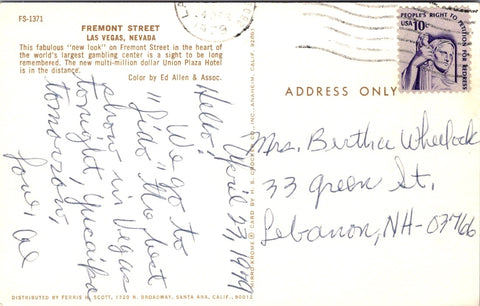 FS-1371
FREMONT STREET
LAS VEGAS, NEVADA
This fabulous "new look" on Fremont Street in the heart of
the world's largest gambling center is a sight to be long
remembered. The new multi-million dollar Union Plaza Hotel
is in the distance.
Color by Ed Allen & Assoc.
PEOPLE'S RIGHT TO PETITION FOR REDRESS
USA 10c
ADDRESS ONLY
April 27, 1979
Hello!
We go to
"Lido" the best
show in Vegas
tonight, Yucaipa
tomorrow,
Love, Al
Mrs. Bertha Wheelock
33 green St,
Lebanon, NH-03766
CARD BY H. S. CROCKER CO., INC., ANAHEIM, CALIF.
DISTRIBUTED BY FERRIS H. SCOTT, 1720 N. BROADWAY, SANTA ANA, CALIF.